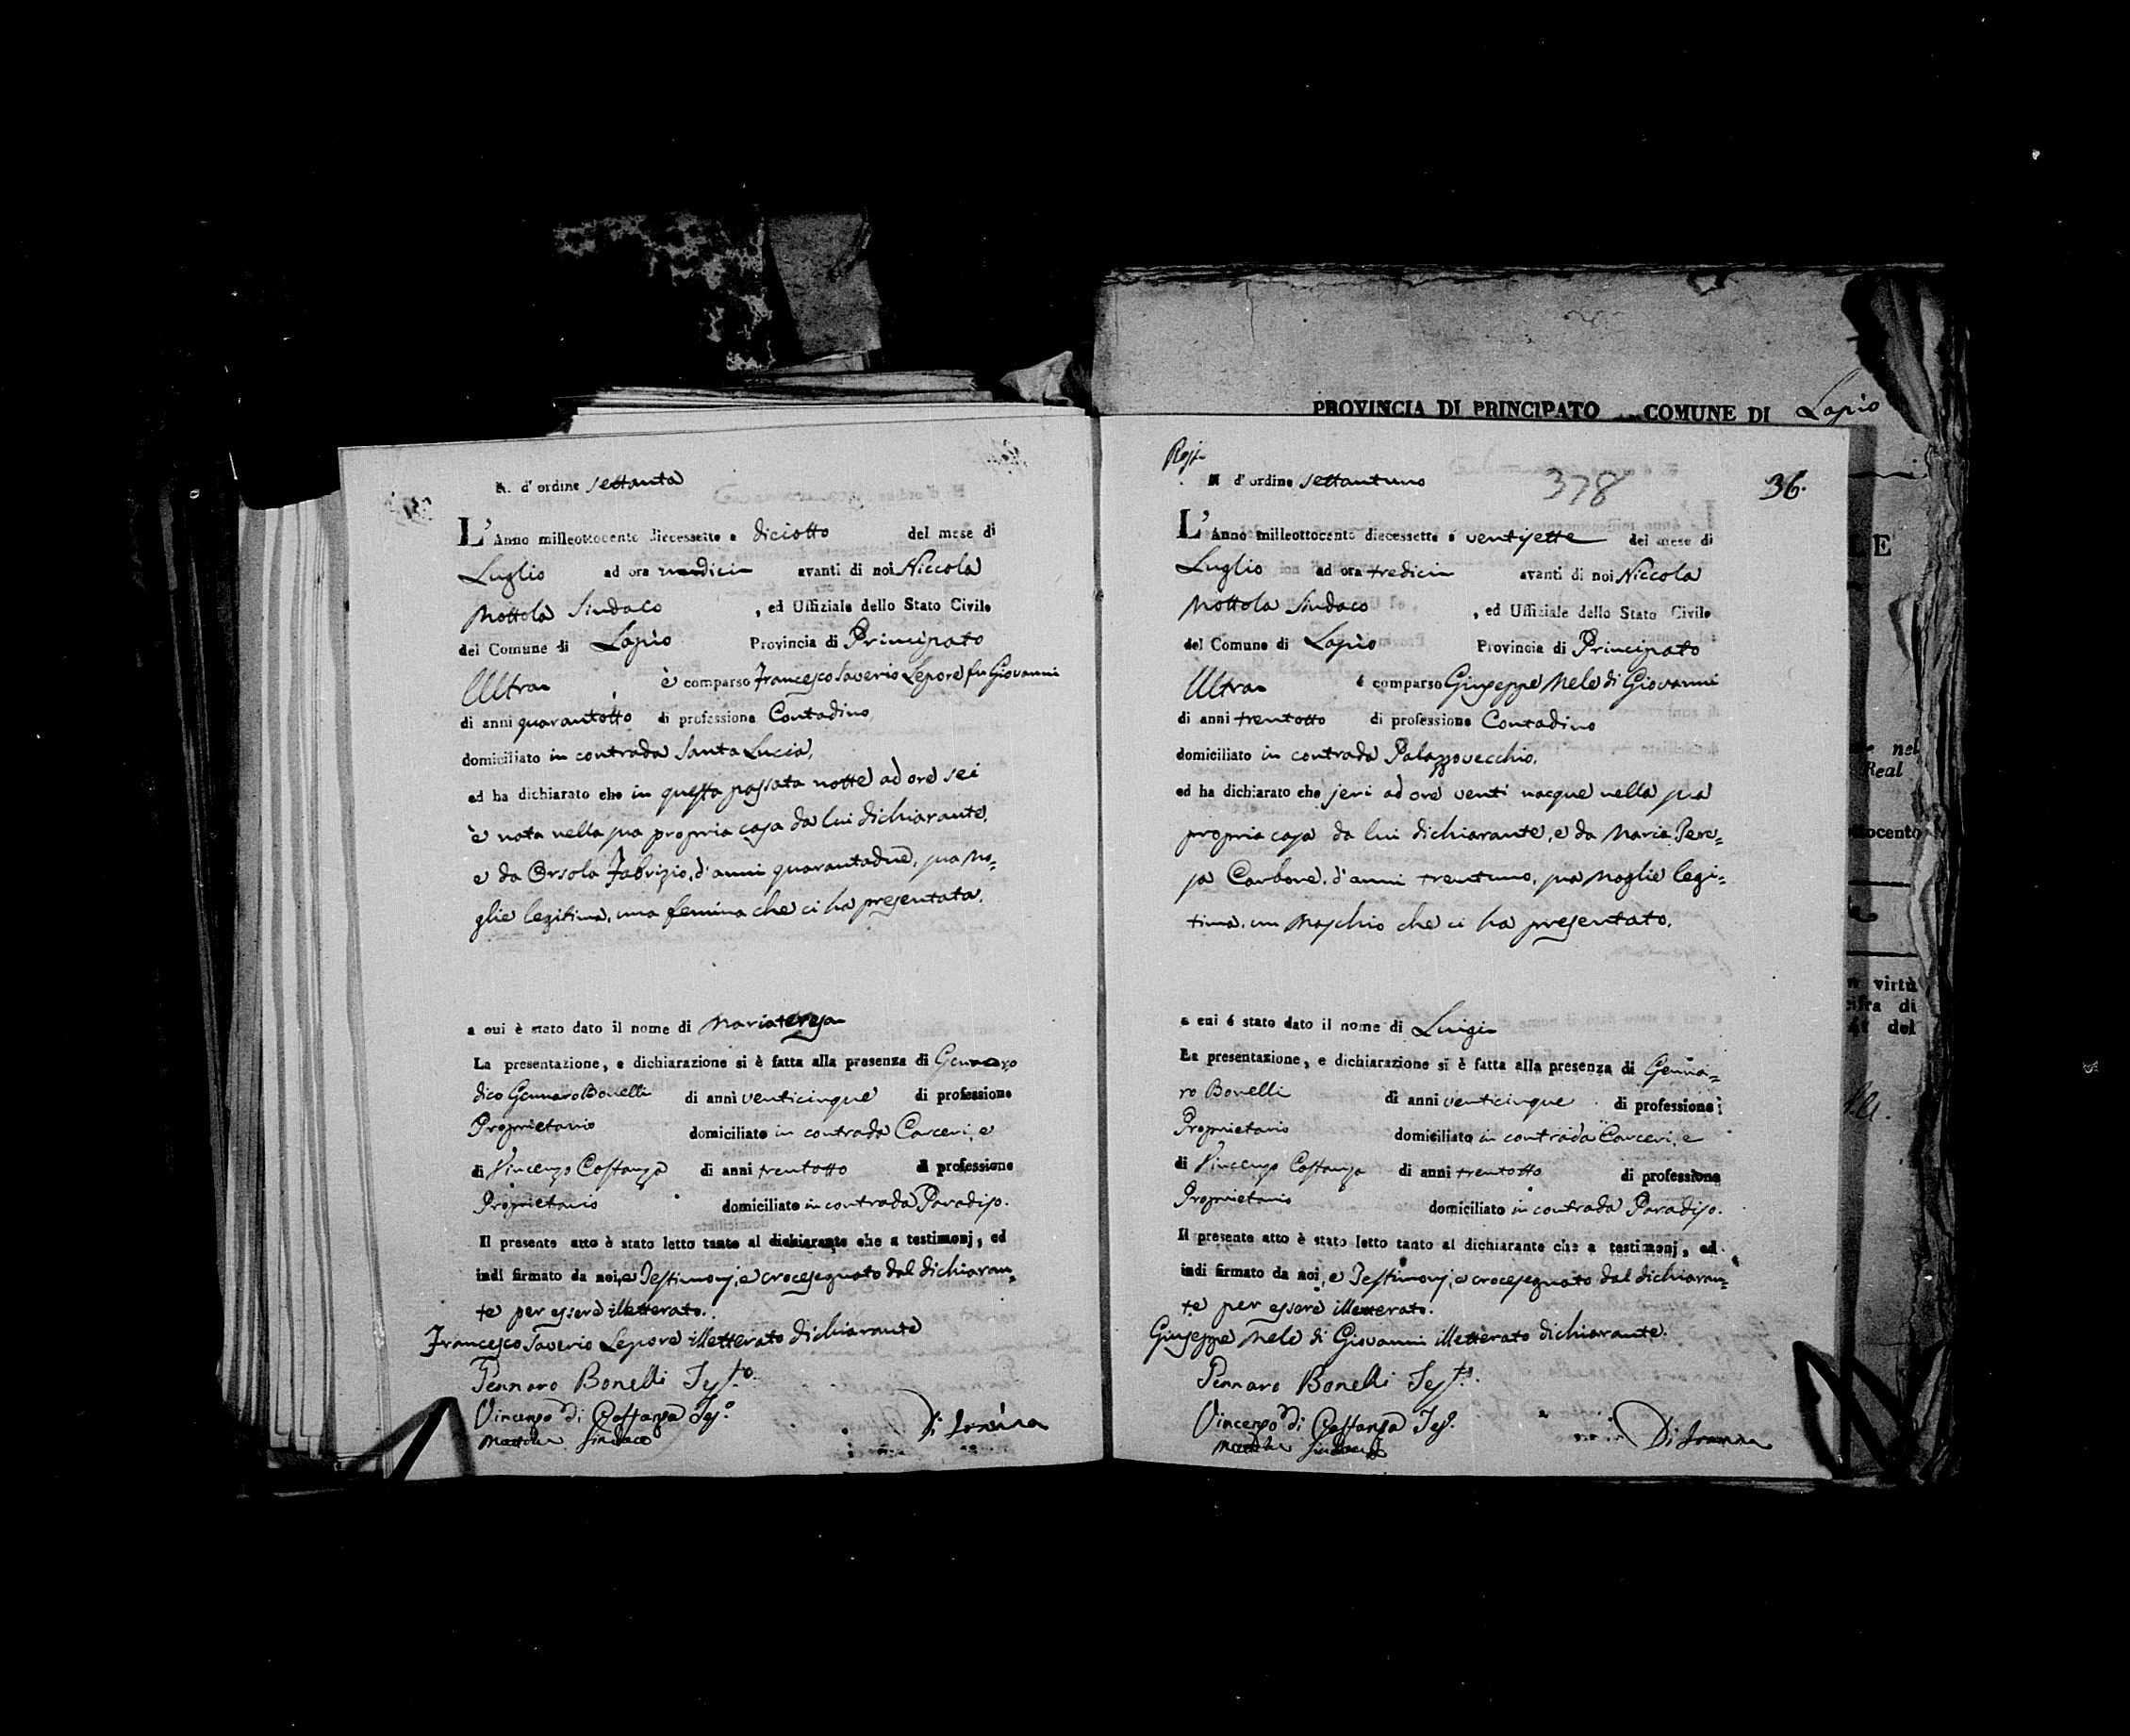 PROVINCIA DI PRINCIPATO COMUNE DI Lapio
N. d' ordine settanta
L' Anno milleottocento diecessette a diciotto del mese di
Luglio ad ora undici avanti di noi Niccola
Mottola Sindaco , ed Uffiziale dello Stato Civile
del Comune di Lapio Provincia di Principato
Ultra è comparso Francesco Saverio Lepore fu Giovanni
di anni quarantotto di professione Contadino
domiciliato in contrada Santa Lucia,
ed ha dichiarato che in questa passata notte ad ore sei
è nata nella sua propria casa da lui dichiarante,
e da Orsola Fabrizio, d'anni quarantadue, sua Mo=
glie legitima, una femina che ci ha presentata.
a cui è stato dato il nome di Mariateresa
La presentazione, e dichiarazione si è fatta alla presenza di Gennaro
dico Gennaro Bonelli di anni venticinque di professione
Proprietario domiciliato in contrada Carceri, e
di Vincenzo Costanza di anni trentotto di professione
Proprietario domiciliato in contrada Paradiso.
Il presente atto è stato letto tanto al dichiarante che a testimonj, ed
indi firmato da noi, e Testimonj, e crocesegnato dal dichiaran=
te per essere illetterato.
Francesco Saverio Lepore illetterato dichiarante
Gennaro Bonelli Test.o
Vincenzo di Costanza Tes.o
Sindaco
Regt.
N d' ordine settantuno 378 36.
L' Anno milleottocento diecessette a ventisette del mese di
Luglio ad ora tredici avanti di noi Niccola
Mottola Sindaco , ed Uffiziale dello Stato Civile
del Comune di Lapio Provincia di Principato
Ultra é comparso Giuseppe Mele di Giovanni
di anni trentotto di professione Contadino
domiciliato in contrada Palazzovecchio,
ed ha dichiarato che jeri ad ore venti nacque nella sua
propria casa da lui dichiarante, e da Maria Tere=
sa Carbone, d'anni trentuno, sua Moglie legi=
tima, un Maschio che ci ha presentato.
a cui é stato dato il nome di Luigi
La presentazione, e dichiarazione si è fatta alla presenza di Genna=
ro Bonelli di anni venticinque di professione
Proprietario domiciliato in contrada Carceri, e
di Vincenzo Costanza di anni trentotto di professione
Proprietario domiciliato in contrada Paradiso.
Il presente atto è stato letto tanto al dichiarante che a testimonj, ed
indi firmato da noi, e Testimonj, e crocesegnato dal dichiaran=
te per essere illetterato.
Giuseppe Mele di Giovanni illetterato dichiarante.
Gennaro Bonelli Test.o
Vincenzo di Costanza Tes.o
Sindaco
nel
Real
virtù
cifra di
del